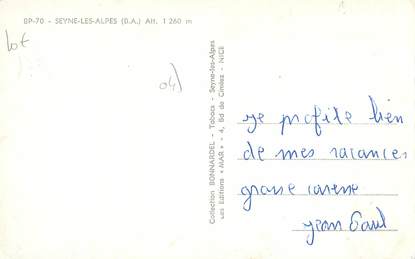 BP-70 - SEYNE-LES-ALPES (B.A.) Alt. 1 260 m
Lot
04)
Collection BONNARDEL - Tabacs - Seyne-les-Alpes
Les Editions "MAR" - 4, Bd de Cimiez - NICE
je profite bien
de mes vacances
grosse caresse
Jean Paul